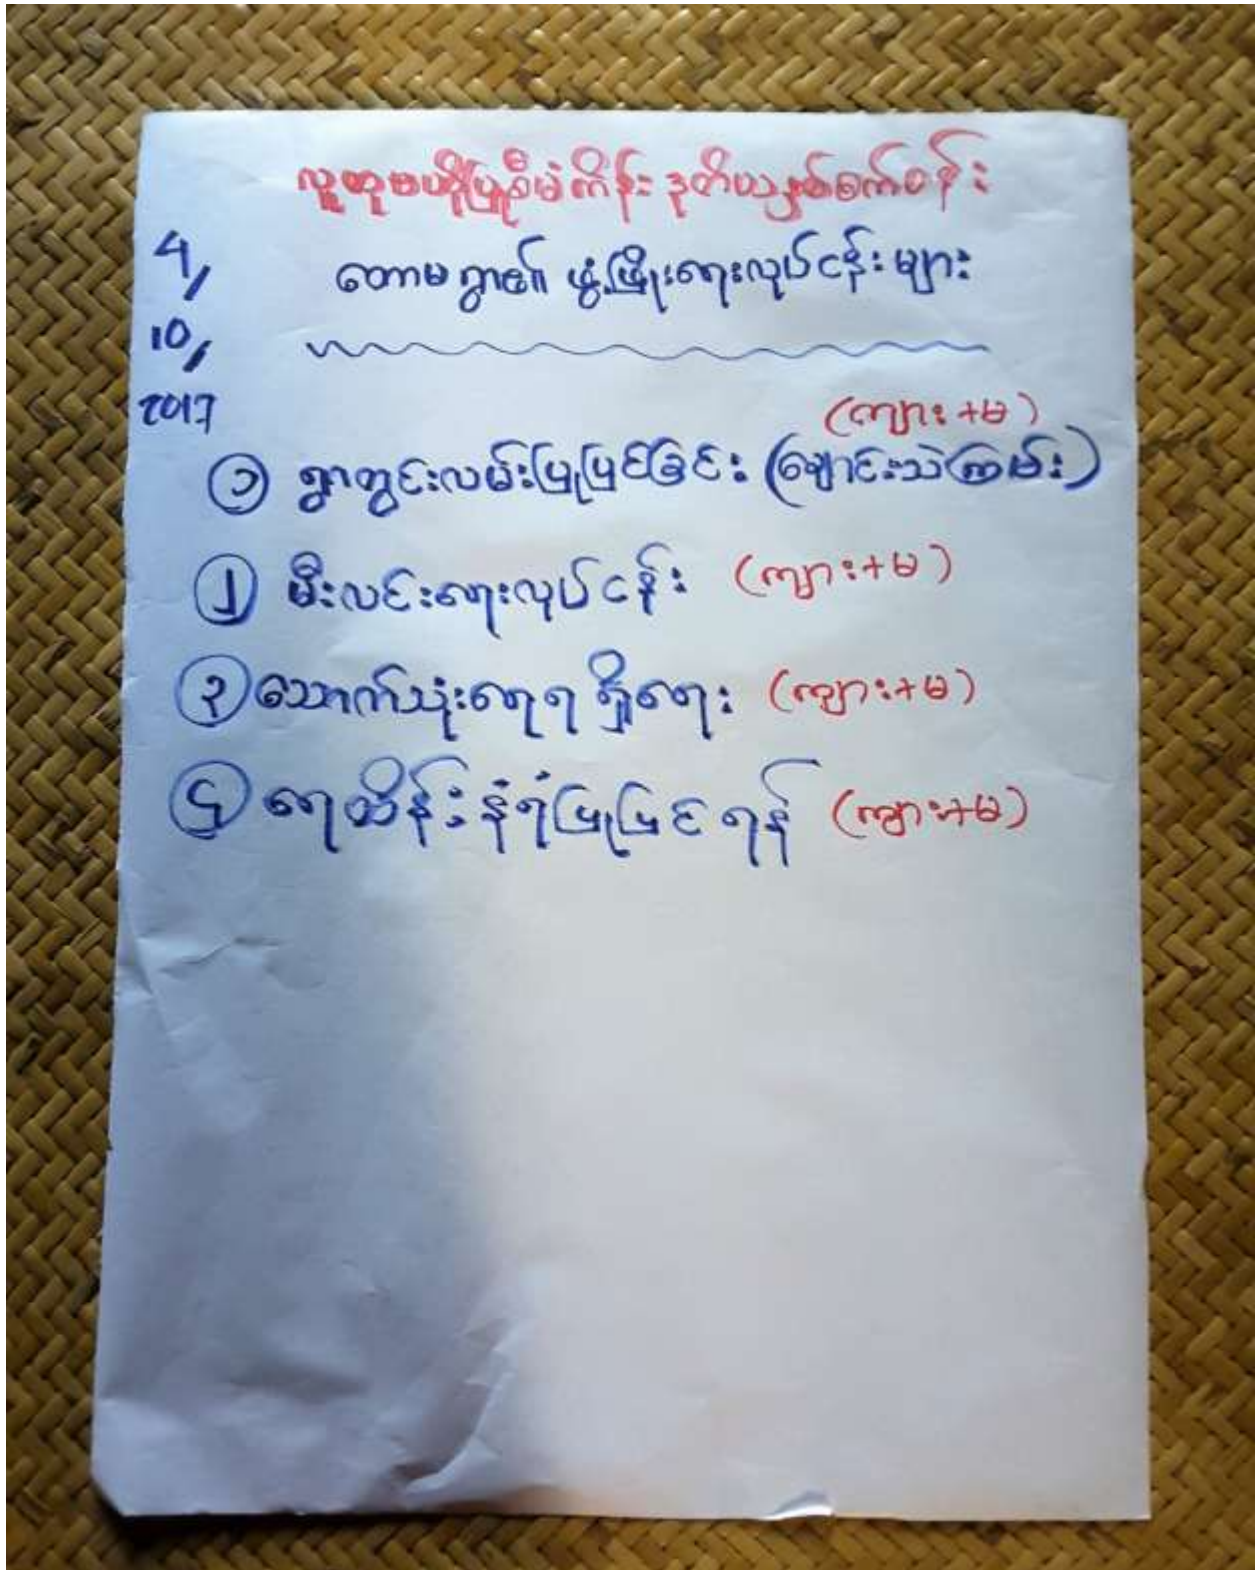 လူထုဗဟိုပြုစီမံကိန်း ဒုတိယနှစ်စက်ဝန်း
4/
တောမရွာ၏ ဖွံ့ဖြိုးရေးလုပ်ငန်းများ
10/
2017
(ကျား+မ)
၁ ရွာတွင်းလမ်းပြုပြင်ခြင်း (ချောင်းသဲကြမ်း)
၂ မီးလင်းရေးလုပ်ငန်း (ကျား+မ)
၃ သောက်သုံးရေရရှိရေး (ကျား+မ)
၄ ရေထိန်းနံရံပြုပြင်ရန် (ကျား+မ)